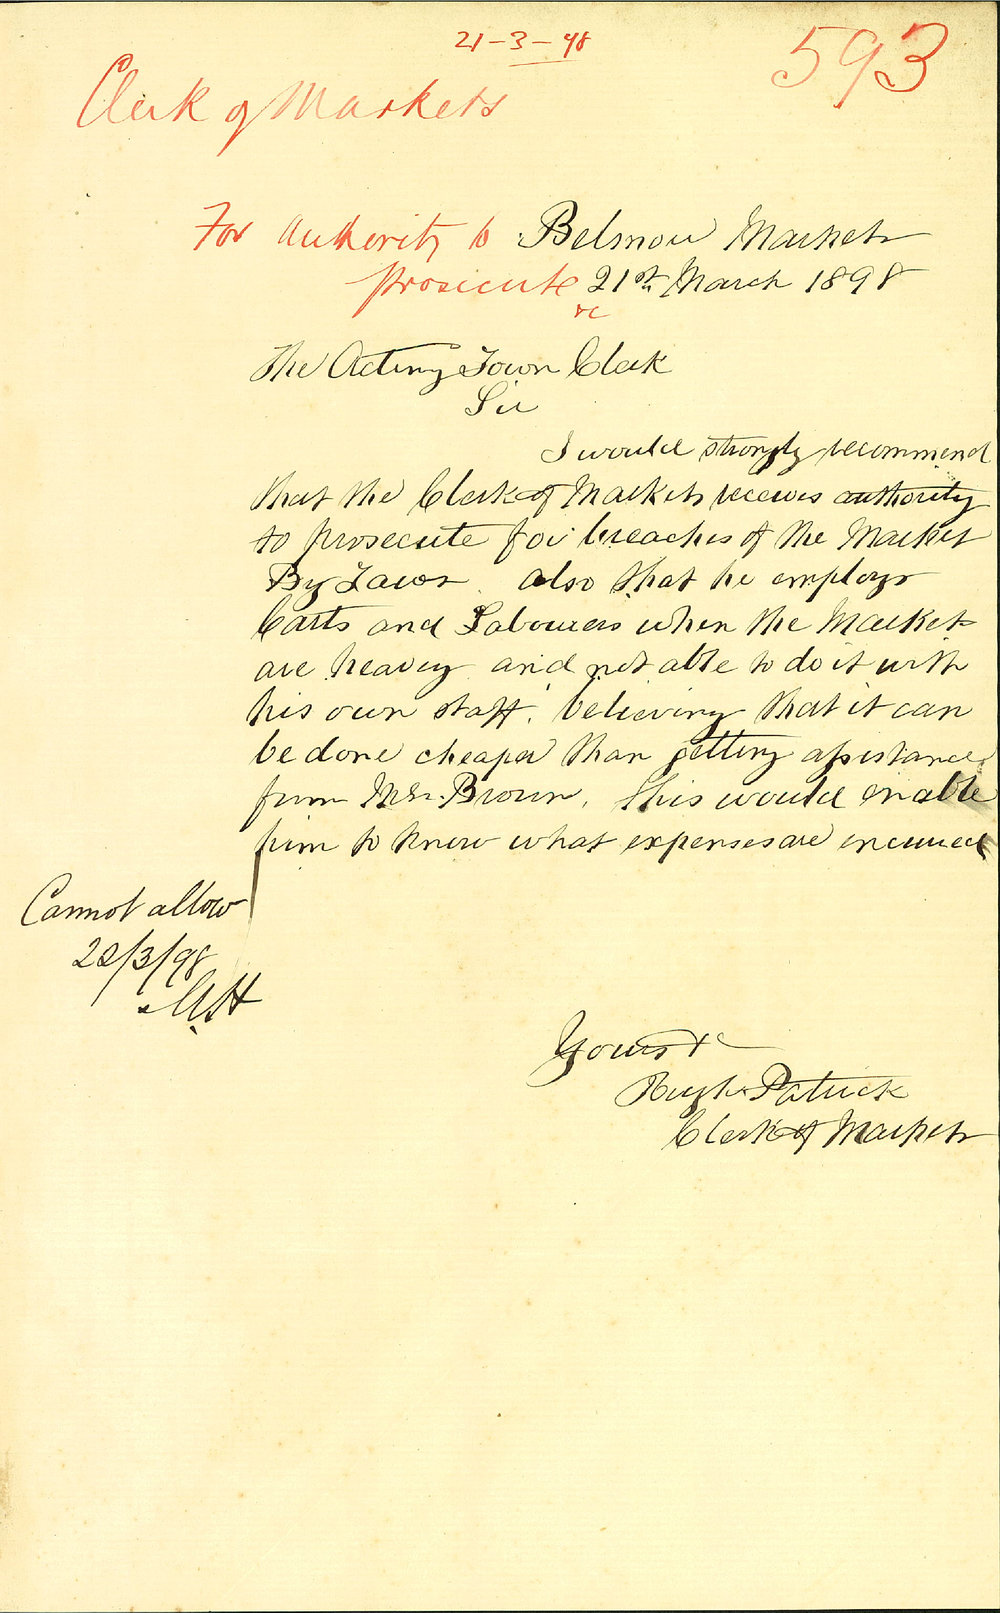 21-3-98
593
Clerk of Markets
For Authority to
Prosecute
&c
Belmore Markets
21st March 1898
The Acting Town Clerk
Sir
I would strongly recommend
that the Clerk of Markets receives authority
to prosecute for breaches of the Market
By Laws. also that he employs
Carts and Labourers when the Markets
are heavy and not able to do it with
his own staff. believing that it can
be done cheaper than getting assistance
from Mr. Brown. This would enable
him to know what expenses are incurred
Cannot allow
22/3/98
Yours &c
Hugh Patrick
Clerk of Markets